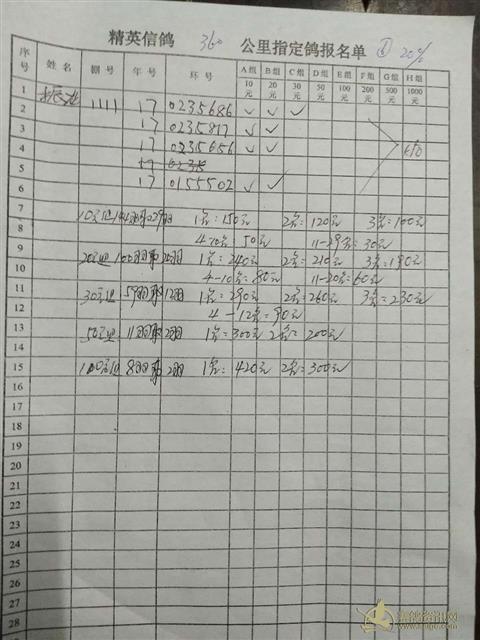 精英信鸽 360 公里指定鸽报名单 ① 20%
序号 姓名 棚号 年号 环号 A组 10元 B组 20元 C组 30元 D组 50元 E组 100元 F组 200元 G组 500元 H组 1000元
1
2 1111 17 0235686 ✓ ✓ ✓
3 17 0235817 ✓ ✓
4 17 0235656 ✓ ✓
5 17 0235
6 17 0155502 ✓ ✓
7
10元组144羽取29羽 1名:150元 2名:120元 3名:100元
8
4-10名 50元 11-29名:30元
9
20元组 100羽取20羽 1名:240元 2名:210元 3名:190元
10
4-10名:80元 11-20名:60元
11
30元组 59羽取12羽 1名:290元 2名:260元 3名:230元
12
4-12名:90元
13
50元组 11羽取2羽 1名:300元 2名:200元
14
15 100元组 8羽取2羽 1名:420元 2名:300元
16
17
18
19
20
21
22
23
24
25
26
27
28